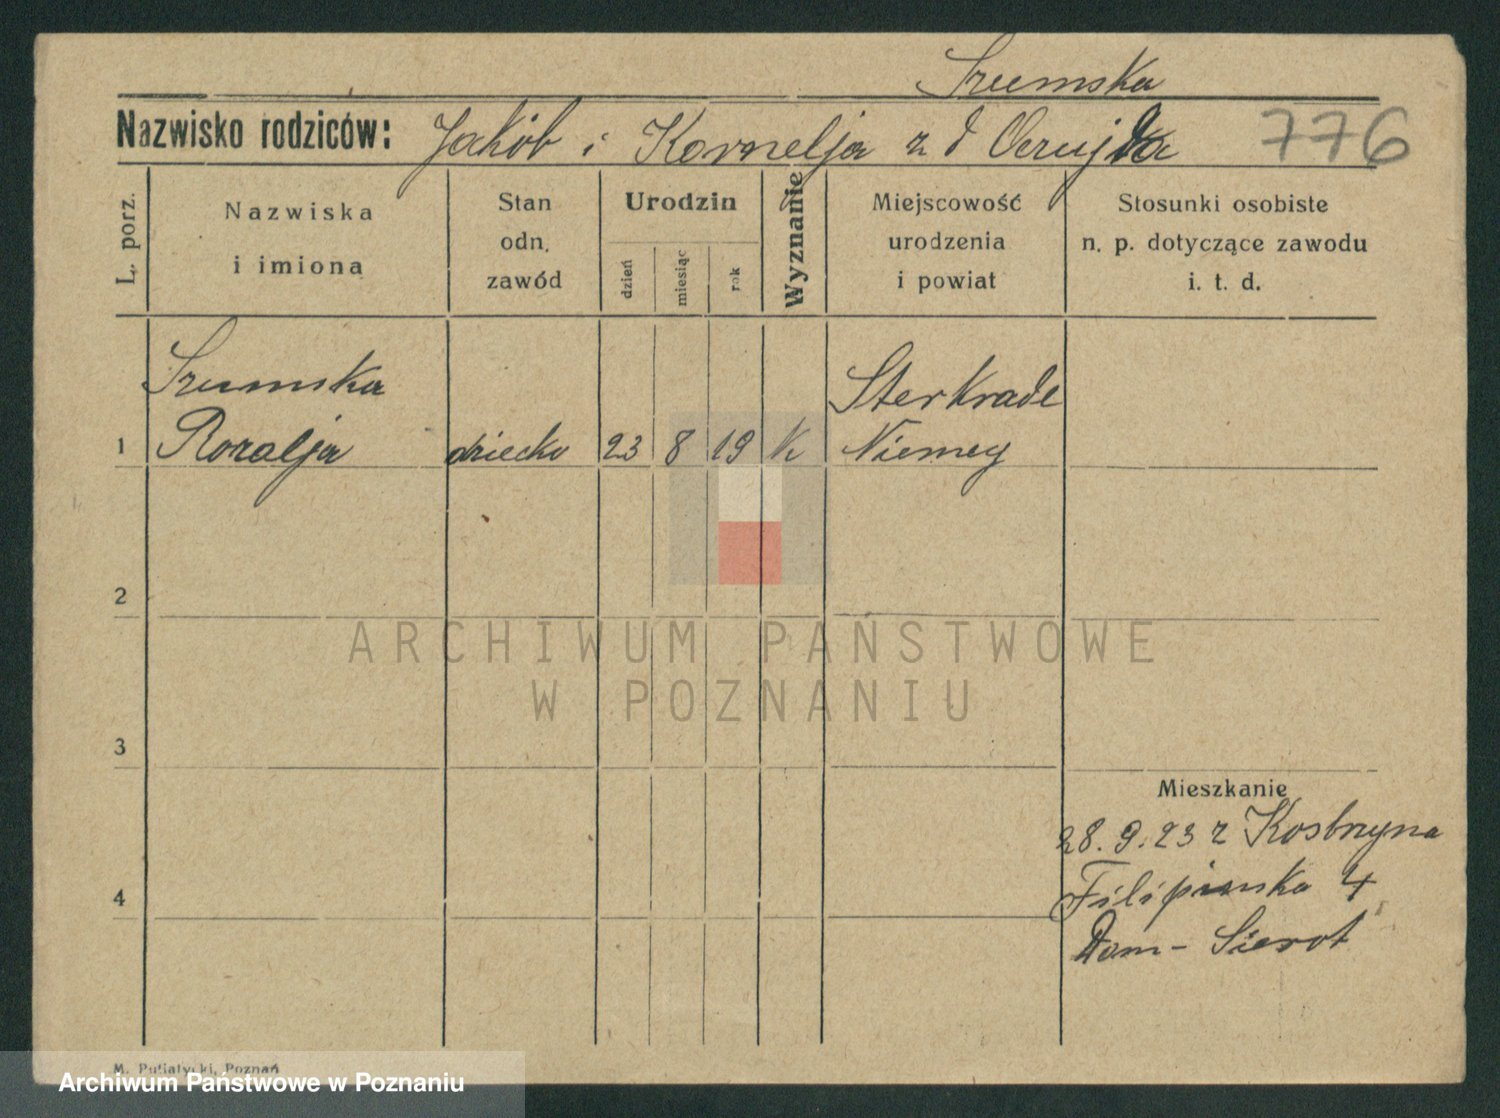 Szumska
Nazwisko rodziców: Jakób i Kornelja z d 776
L. porz.
Nazwiska
i imiona
Stan
odn.
zawód
Urodzin
dzień
miesiąc
rok
Wyznanie
Miejscowość
urodzenia
i powiat
Stosunki osobiste
n. p. dotyczące zawodu
i. t. d.
Szumska
Sterkrade
1 Rozalja dziecko 23 8 19 k Niemcy
2
ARCHIWUM PAŃSTWOWE
W POZNANIU
3
Mieszkanie
28.9.23 z Kostrzyna
4
Filipinska 4
Dom-Sierot
M. Putiatycki, Poznań
Archiwum Państwowe w Poznaniu